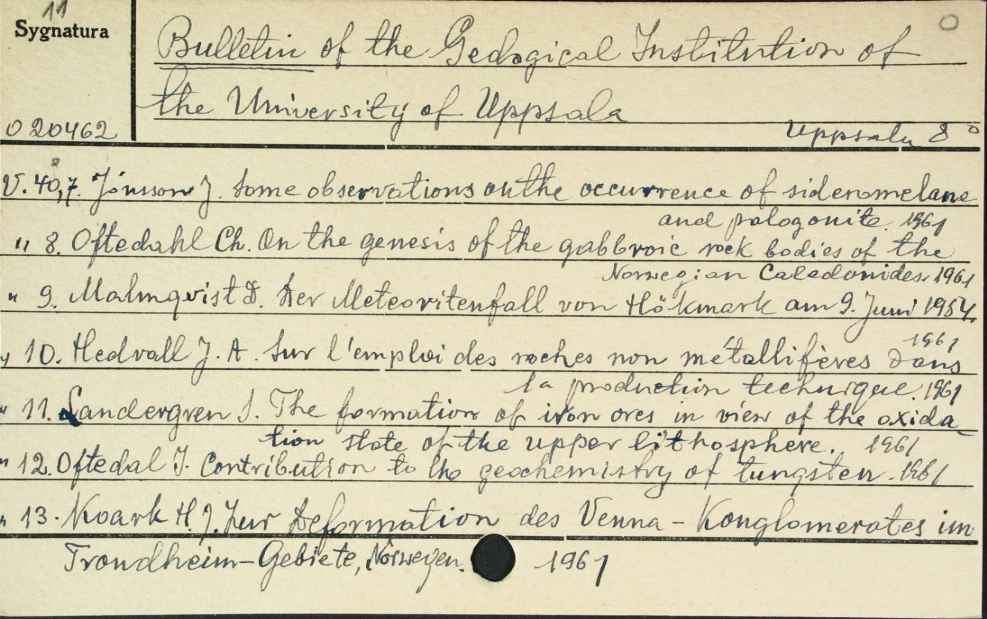 11
Sygnatura
O 20462
O
Bulletin of the Geological Institution of
the University of Uppsala
Uppsala 8°
V. 40,7. Jónsson J. Some observations on the occurrence of sideromelane
and palagonite. 1961
" 8. Oftedahl Ch. On the genesis of the gabbroic rock bodies of the
Norwegian Caledonides. 1961
" 9. Malmqvist D. Der Meteoritenfall von Hökmark am 9. Juni 1954.
1961
" 10. Hedvall J. A. Sur l'emploi des roches non métallifères dans
la production technique. 1961
" 11. Landergren S. The formation of iron ores in view of the oxida-
tion state of the upper lithosphere. 1961
" 12. Oftedal I. Contribution to the geochemistry of tungsten. 1961
" 13. Koark H. J. Zur Deformation des Venna-Konglomerates im
Trondheim-Gebiete, Norwegen. 1961